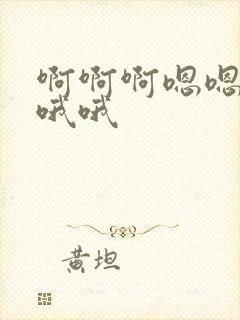 啊啊啊嗯嗯
哦哦
黄坦